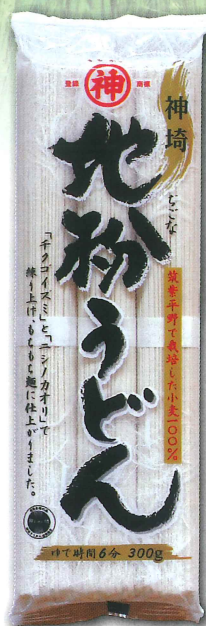 登録 神 商標
神埼
地粉うどん
ぢごな
筑紫平野で栽培した小麦一〇〇%
「チクゴイズミ」と「ニシノカオリ」で
練り上げ、もちもち麺に仕上がりました。
ゆで時間6分 300g